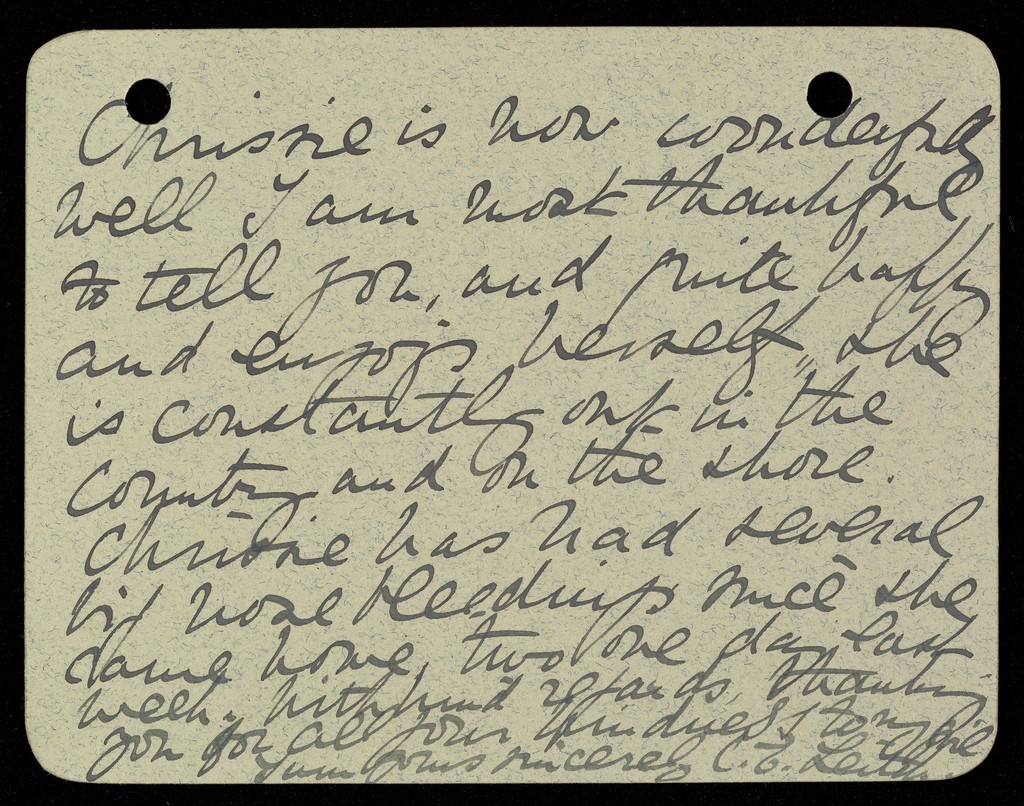 Chrissie is now wonderfully
well I am most thankful
to tell you, and quite happy
and enjoys herself, she
is constantly out in the
country and on the shore.
Chrissie has had several
big nose bleedings since she
came home, two one day last
week. With kind regards, thanking
you for all your kindness to my girl
I am yours sincerely C. E.